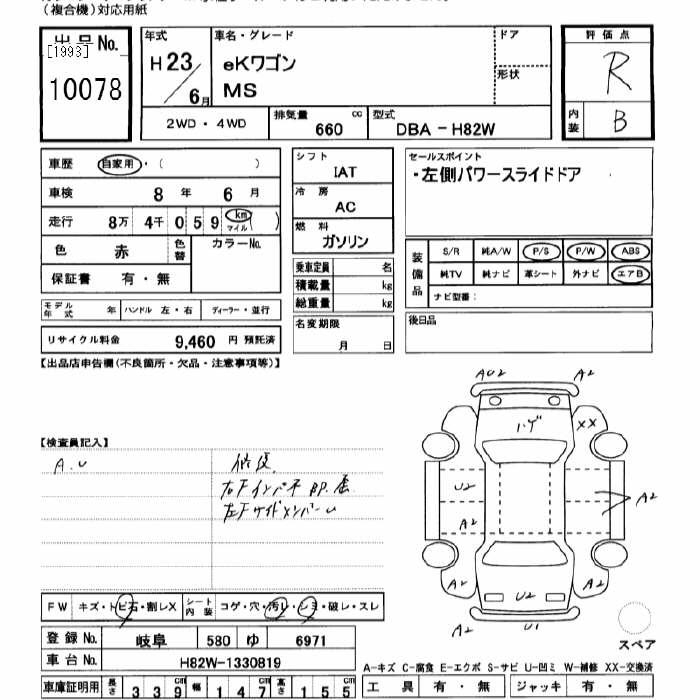 (複合機)対応用紙
出品No.
[1993]
10078
年式
H23/6月
車名・グレード
eKワゴン
MS
ドア
形状
2WD・4WD
排気量 660 cc
型式 DBA-H82W
評価点
R
内装 B
車歴 自家用・( )
車検 8年 6月
走行 8万4千059 km マイル ( )
色 赤 色替 カラーNo.
保証書 有・無
シフト
IAT
冷房
AC
燃料
ガソリン
乗車定員 名
積載量 kg
総重量 kg
セールスポイント
・左側パワースライドドア
装備品 S/R 純A/W P/S P/W ABS
純TV 純ナビ 革シート 外ナビ エアB
ナビ型番:
モデル年式 年 ハンドル 左・右 ディーラー・並行
リサイクル料金 9,460 円 預託済
名変期限 月 日
後日品
【出品店申告欄(不良箇所・欠品・注意事項等)】
【検査員記入】
A.U
A2
XX
U2
A2
A2
A2
A2
U2
A2
U1
FW キズ・トビ石・割レX シート内装 コゲ・穴・汚レ・シミ・破レ・スレ
スペア
登録No. 岐阜 580 ゆ 6971
車台No. H82W-1330819
A-キズ C-腐食 E-エクボ S-サビ U-凹ミ W-補修 XX-交換済
車庫証明用 長さ 339cm 幅 147cm 高さ 155cm
工具 有・無 ジャッキ 有・無